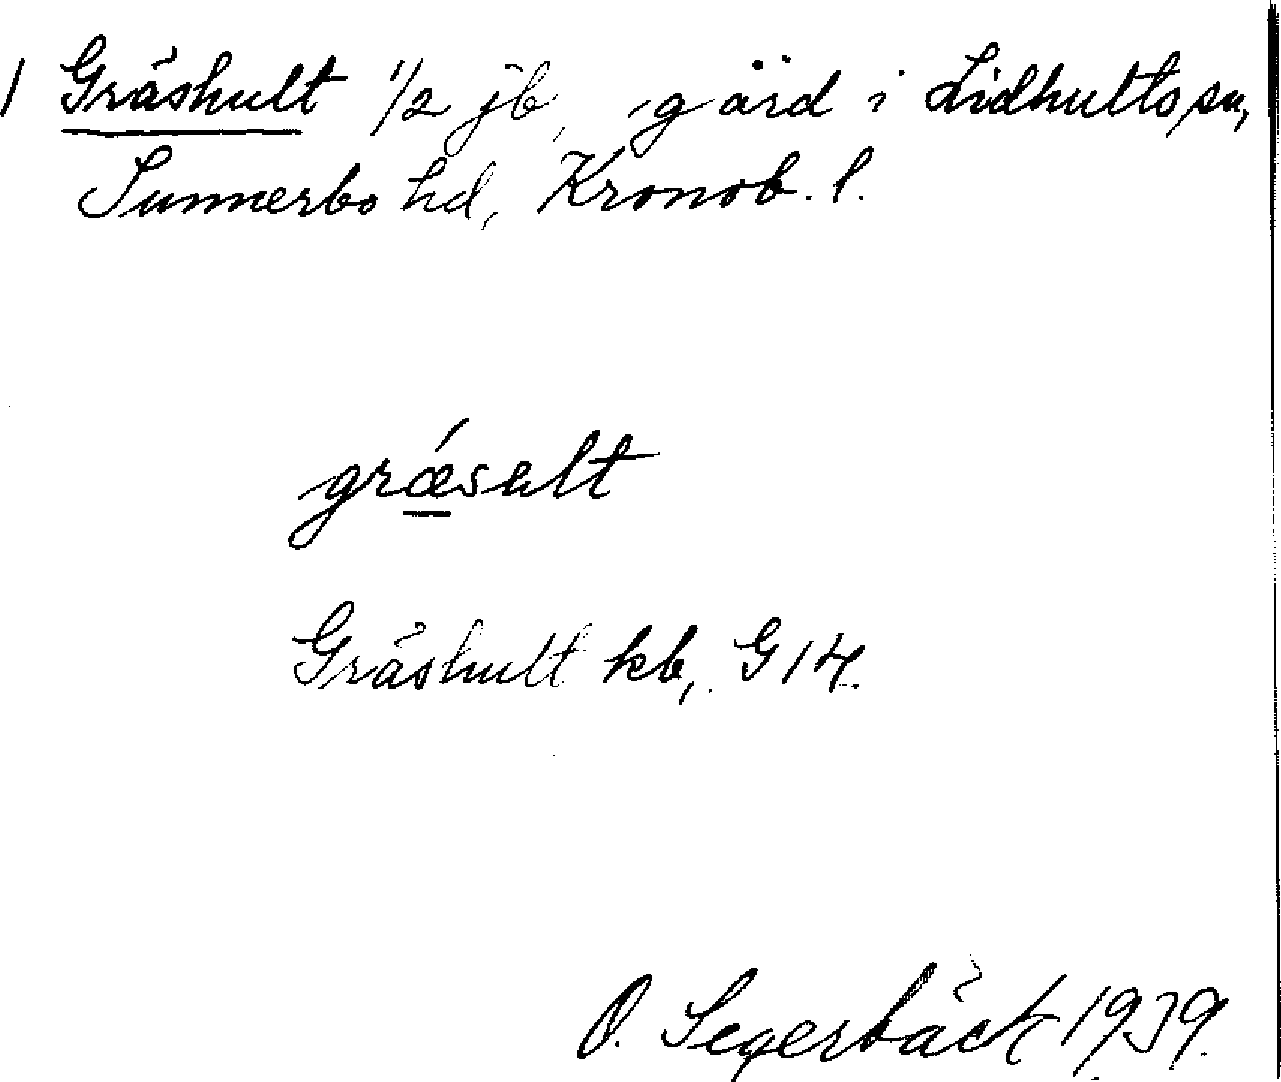 1 Gräshult 1/2 jb, gård i Lidhults sn,
Sunnerbo hd, Kronob. l.
grǽsult
Gräshult kb, G 14.
O. Segerbäck 1939.